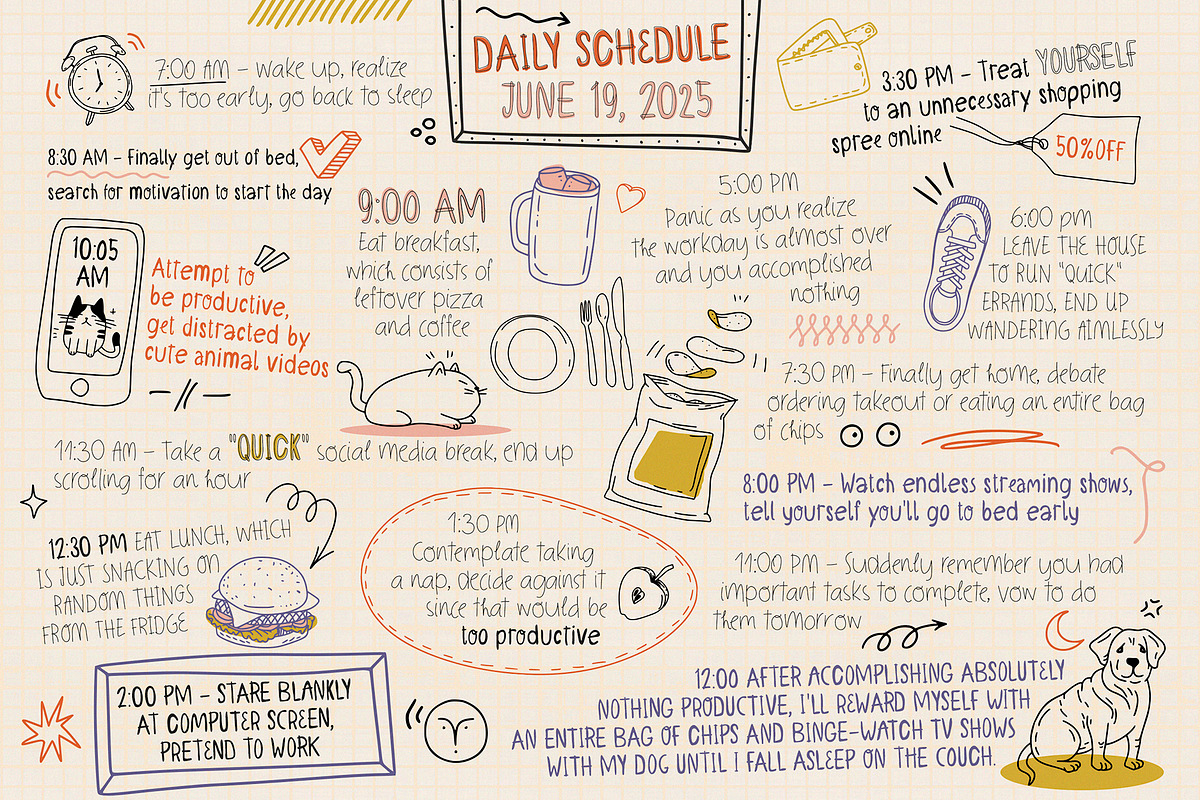 DAILY SCHEDULE
JUNE 19, 2025
7:00 AM – Wake up, realize
it's too early, go back to sleep
8:30 AM – Finally get out of bed,
search for motivation to start the day
9:00 AM
Eat breakfast,
which consists of
leftover pizza
and coffee
10:05
AM
Attempt to
be productive,
get distracted by
cute animal videos
11:30 AM – Take a "QUICK" social media break, end up
scrolling for an hour
12:30 PM EAT LUNCH, WHICH
IS JUST SNACKING ON
RANDOM THINGS
FROM THE FRIDGE
1:30 PM
Contemplate taking
a nap, decide against it
since that would be
too productive
2:00 PM – STARE BLANKLY
AT COMPUTER SCREEN,
PRETEND TO WORK
3:30 PM – Treat YOURSELF
to an unnecessary shopping
spree online
50%OFF
5:00 PM
Panic as you realize
the workday is almost over
and you accomplished
nothing
6:00 pm
LEAVE THE HOUSE
TO RUN "QUICK"
ERRANDS, END UP
WANDERING AIMLESSLY
7:30 PM – Finally get home, debate
ordering takeout or eating an entire bag
of chips
8:00 PM – Watch endless streaming shows,
tell yourself you'll go to bed early
11:00 PM – Suddenly remember you had
important tasks to complete, vow to do
them tomorrow
12:00 AFTER ACCOMPLISHING ABSOLUTELY
NOTHING PRODUCTIVE, I'LL REWARD MYSELF WITH
AN ENTIRE BAG OF CHIPS AND BINGE-WATCH TV SHOWS
WITH MY DOG UNTIL I FALL ASLEEP ON THE COUCH.